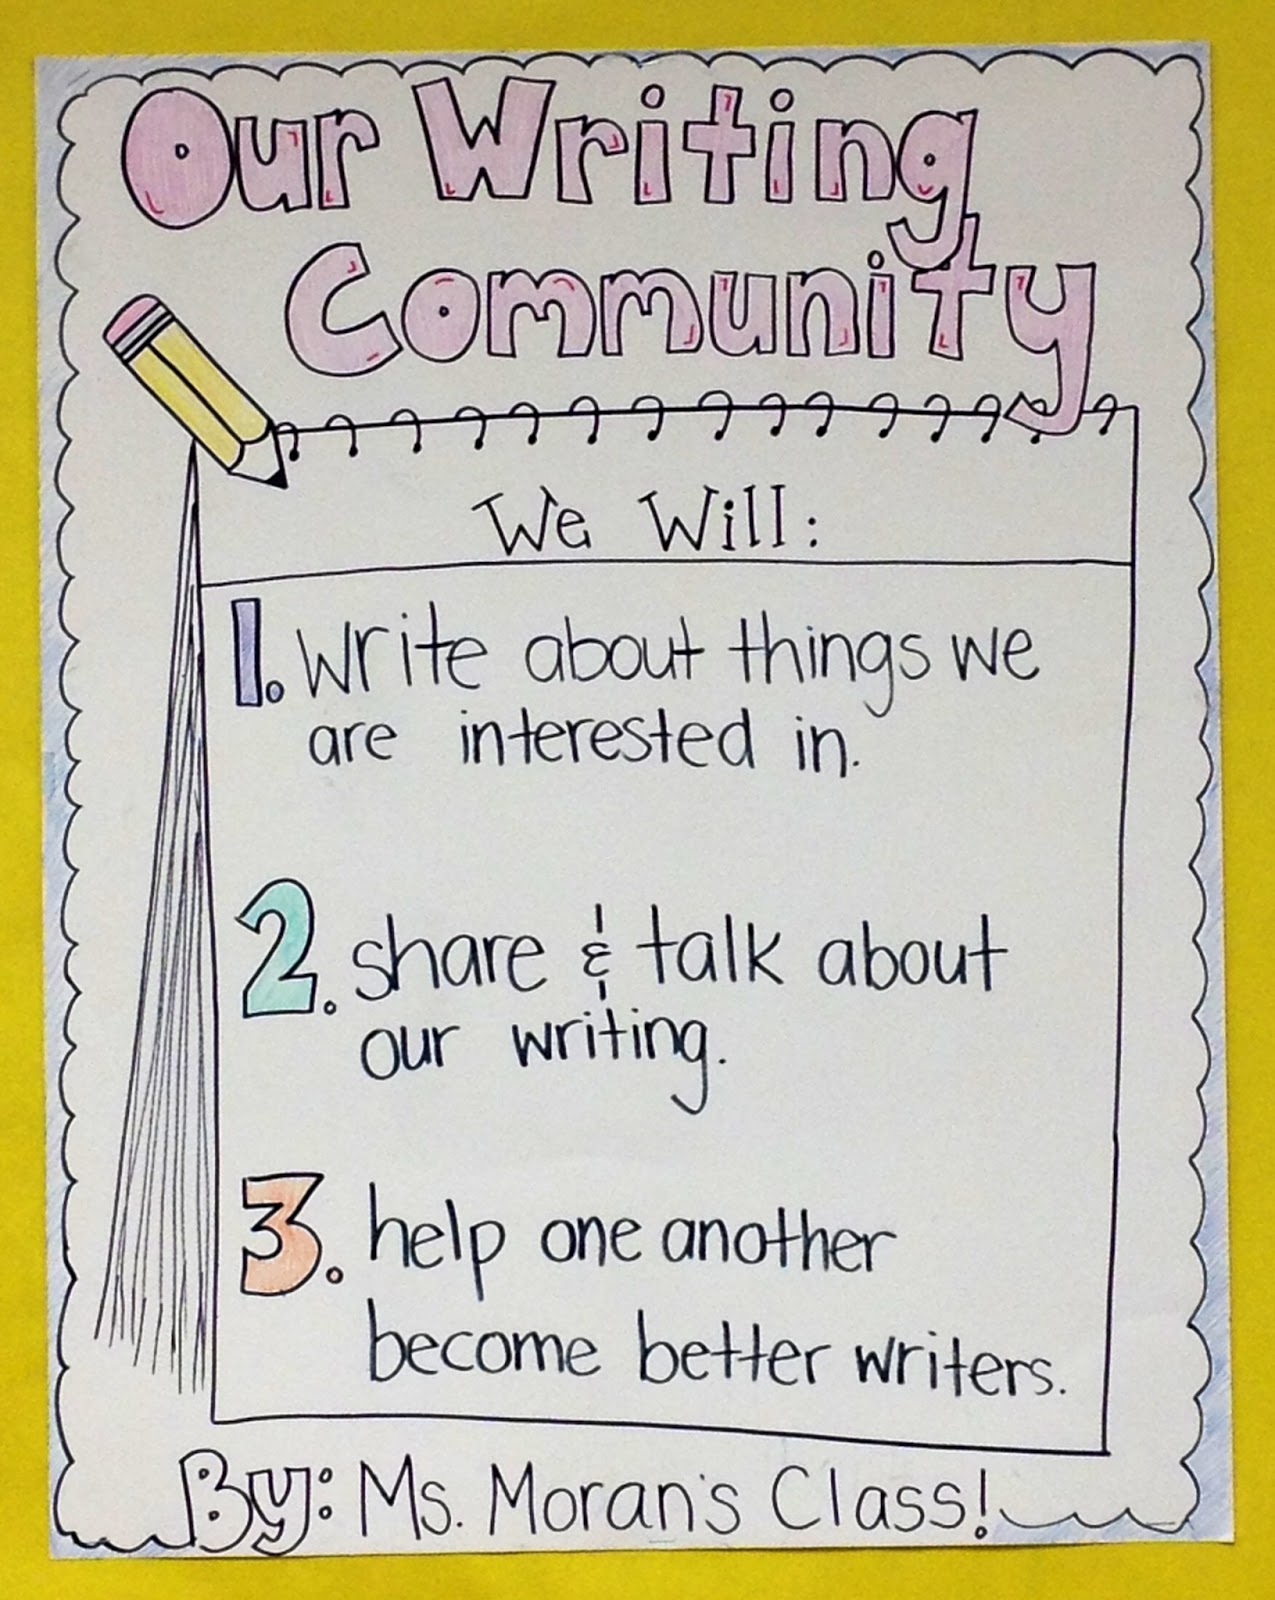 Our Writing
Community
We Will:
1. write about things we
are interested in.
2. share & talk about
our writing.
3. help one another
become better writers.
By: Ms. Moran's Class!